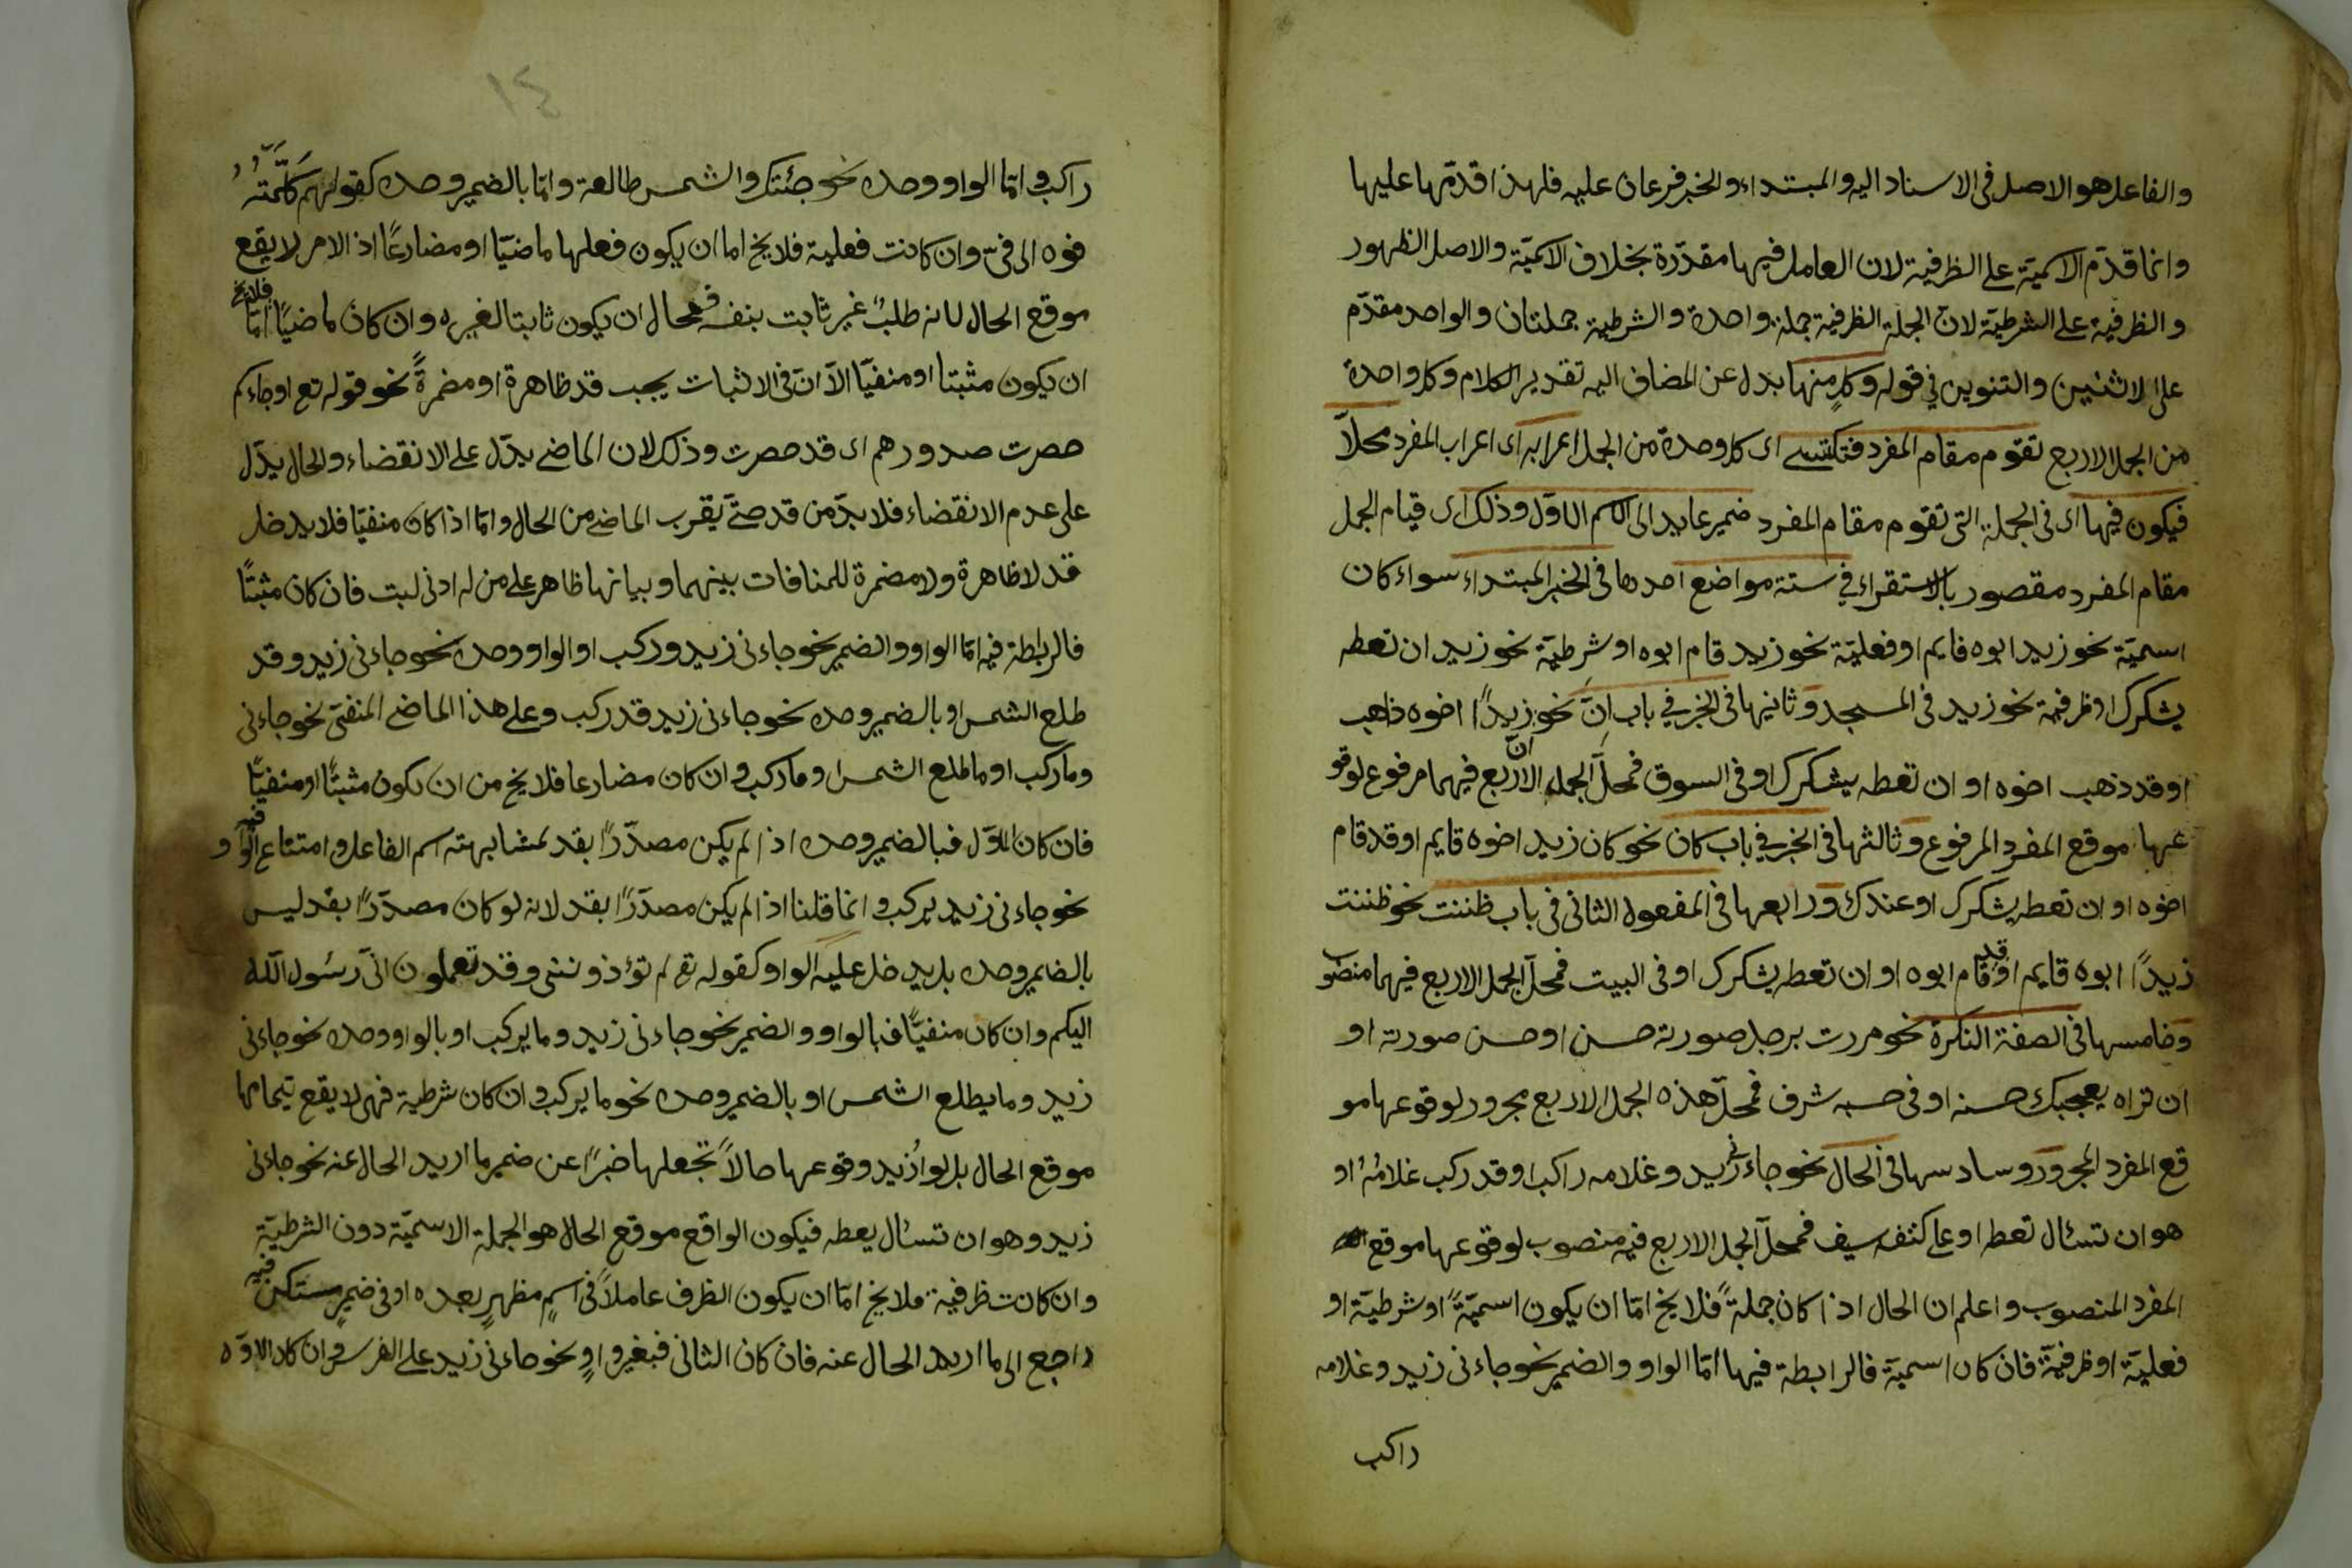 والفاعل هو الاصل فى الاسناد اليه والمبتداء والخبر فرعان عليه فلهذا قدّمها عليها
وانما قدّم الاسميّة على الظرفية لان العامل فيها مقدّرة بخلاف الاسميّة والاصل الظهور
والظرفية على الشرطيّة لانّ الجملة الظرفية جملة واحدة والشرطية جملتان والواحد مقدّم
على الاثنين والتنوين فى قوله وكلٍ منها بدل عن المضاف اليه تقدير الكلام وكل واحدة
من الجمل الاربع تقوم مقام المفرد فتكتسى اى كل وحدة من الجمل اعرابه اى اعراب المفرد محلاً
فيكون فيها اى فى الجملة التى تقوم مقام المفرد ضمير عايد الى الاسم الاوّل وذلك اى قيام الجمل
مقام المفرد مقصور بالاستقراء فى ستة مواضع احدها فى الخبر المبتداء سواء كان
اسميّة نحو زيد ابوه قايم او فعليّة نحو زيد قام ابوه او شرطيّة نحو زيد ان تعطه
يشكرك او ظرفية نحو زيد فى المسجد وثانيها فى الخبر فى باب انّ نحو انّ زيدًا اخوه ذاهب
او قد ذهب اخوه او ان تعطه يشكرك او فى السوق فمحلّ الجمل الاربع فيهما مرفوع لوقو
عها موقع المفرد المرفوع وثالثها فى الخبر فى باب كان نحو كان زيد اخوه قايم او قد قام
اخوه او ان تعطه يشكرك او عندك ورابعها فى المفعول الثانى فى باب ظننت نحو ظننت
زيدًا ابوه قايم او قد قام ابوه او ان تعطه يشكرك او فى البيت فمحلّ الجمل الاربع فيهما منصوب
وخامسها فى الصفة النكرة نحو مررت برجل صورته حسن او حسن صورته او
ان تراه يعجبك حسنه او فى حسبه شرف فمحلّ هذه الجمل الاربع مجرور لوقوعها مو
قع المفرد المجرور وسادسها فى الحال نحو جاءنى زيد وغلامه راكب او قد ركب غلامُهُ او
هو ان تسئال تعطه او على كتفه سيف فمحلّ الجمل الاربع فيه منصوب لوقوعها موقع
المفرد المنصوب واعلم ان الحال اذا كان جملةً فلا يخ امّا ان يكون اسميّةً او شرطيّة او
فعليّة او ظرفيّة فان كان اسميّة فالرابطة فيها امّا الواو والضمير نحو جاءنى زيد وغلامه
راكب
١٤
راكب وامّا الواو وحده نحو جئتك والشمس طالعة وامّا بالضمير وحده كقولهم كلّمتُهُ
فوه الى فىّ وان كانت فعلية فلا يخ اما ان يكون فعلها ماضيًا او مضارعًا اذ الامر لا يقع
موقع الحال لانه طلبٌ غير ثابت بنفسه فمحال ان يكون ثابتا لغيره وان كان ماضيًا فلا يخ امّا
ان يكون مثبتا او منفيّا الاّ انّ فى الاثبات يجب قد ظاهرة او مضمرةً نحو قوله تع او جاءكم
حصرت صدورهم اى قد حصرت وذلك لان الماضى يدّل على الانقضاء والحال يدّل
على عدم الانقضاء فلا بدّ من قد حتّى يقرب الماضى من الحال وامّا اذا كان منفيّا فلا يدخل
قد لا ظاهرة ولا مضمرة للمنافات بينهما وبيانها ظاهر على من له ادنى لبت فان كان مثبتًا
فالرابطة فيه امّا الواو والضمير نحو جاءنى زيد وركب او الواو وحده نحو جاءنى زيد وقد
طلع الشمس او بالضمير وحده نحو جاءنى زيد قد ركب وعلى هذا الماضى المنفىّ نحو جاءنى
وما ركب او ما طلع الشمس او ما ركب وان كان مضارعا فلا يخ من ان يكون مثبتًا او منفيًا
فان كان الاوّل فبالضمير وحده اذا لم يكن مصدّرًا بقد لمشابهته اسم الفاعل وامتناع الواو فيه
نحو جاءنى زيد يركب وانما قلنا اذا لم يكن مصدّرًا بقد لانه لو كان مصدّرًا بقد ليس
بالضمير وحده بل يدخل عليه الواو كقوله تع لم تؤذوننى وقد تعلمون انّى رسُول الله
اليكم وان كان منفيًّا فبالواو والضمير نحو جاءنى زيد وما يركب او بالواو وحده نحو جاءنى
زيد وما يطلع الشمس او بالضمير وحده نحو ما يركب وان كان شرطية فهى لا يقع بتمامها
موقع الحال بل لو اُزيد وقوعها حالاً تجعلها خبرًا عن ضمير ما اريد الحال عنه نحو جاءنى
زيد وهو ان تسئال يعطه فيكون الواقع موقع الحال هو الجملة الاسميّة دون الشرطيّة
وان كانت ظرفية فلا يخ امّا ان يكون الظرف عاملاً فى اسمٍ مظهرٍ بعده او فى ضميرٍ مستكن فيه
راجع الى ما اريد الحال عنه فان كان الثانى فبغير واوٍ نحو جاءنى زيد على الفرس وان كان الاوّل